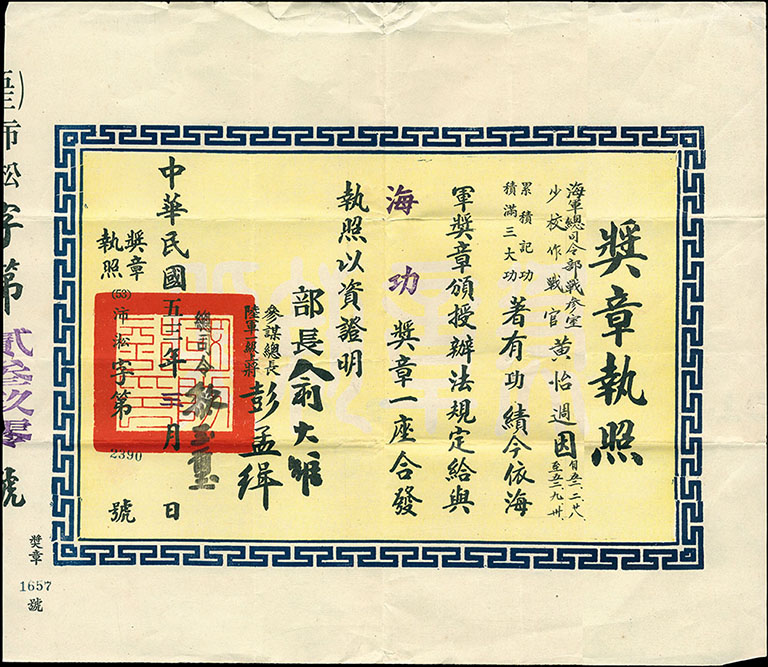 獎章執照
海軍總司令部戰參室
少校作戰官黃怡週因
自五一、二、廿八
至五二、九、卅
累積記功
積滿三大功
著有功績今依海
軍獎章頒授辦法規定給與
海功獎章一座合發
執照以資證明
部長俞大維
參謀總長
陸軍一級上將
彭孟緝
總司令黎玉璽
中華民國五三年三月 日
獎章
執照
(53)沛淞字第2390號
沛淞字第貳叁玖零號
獎章
1657
號